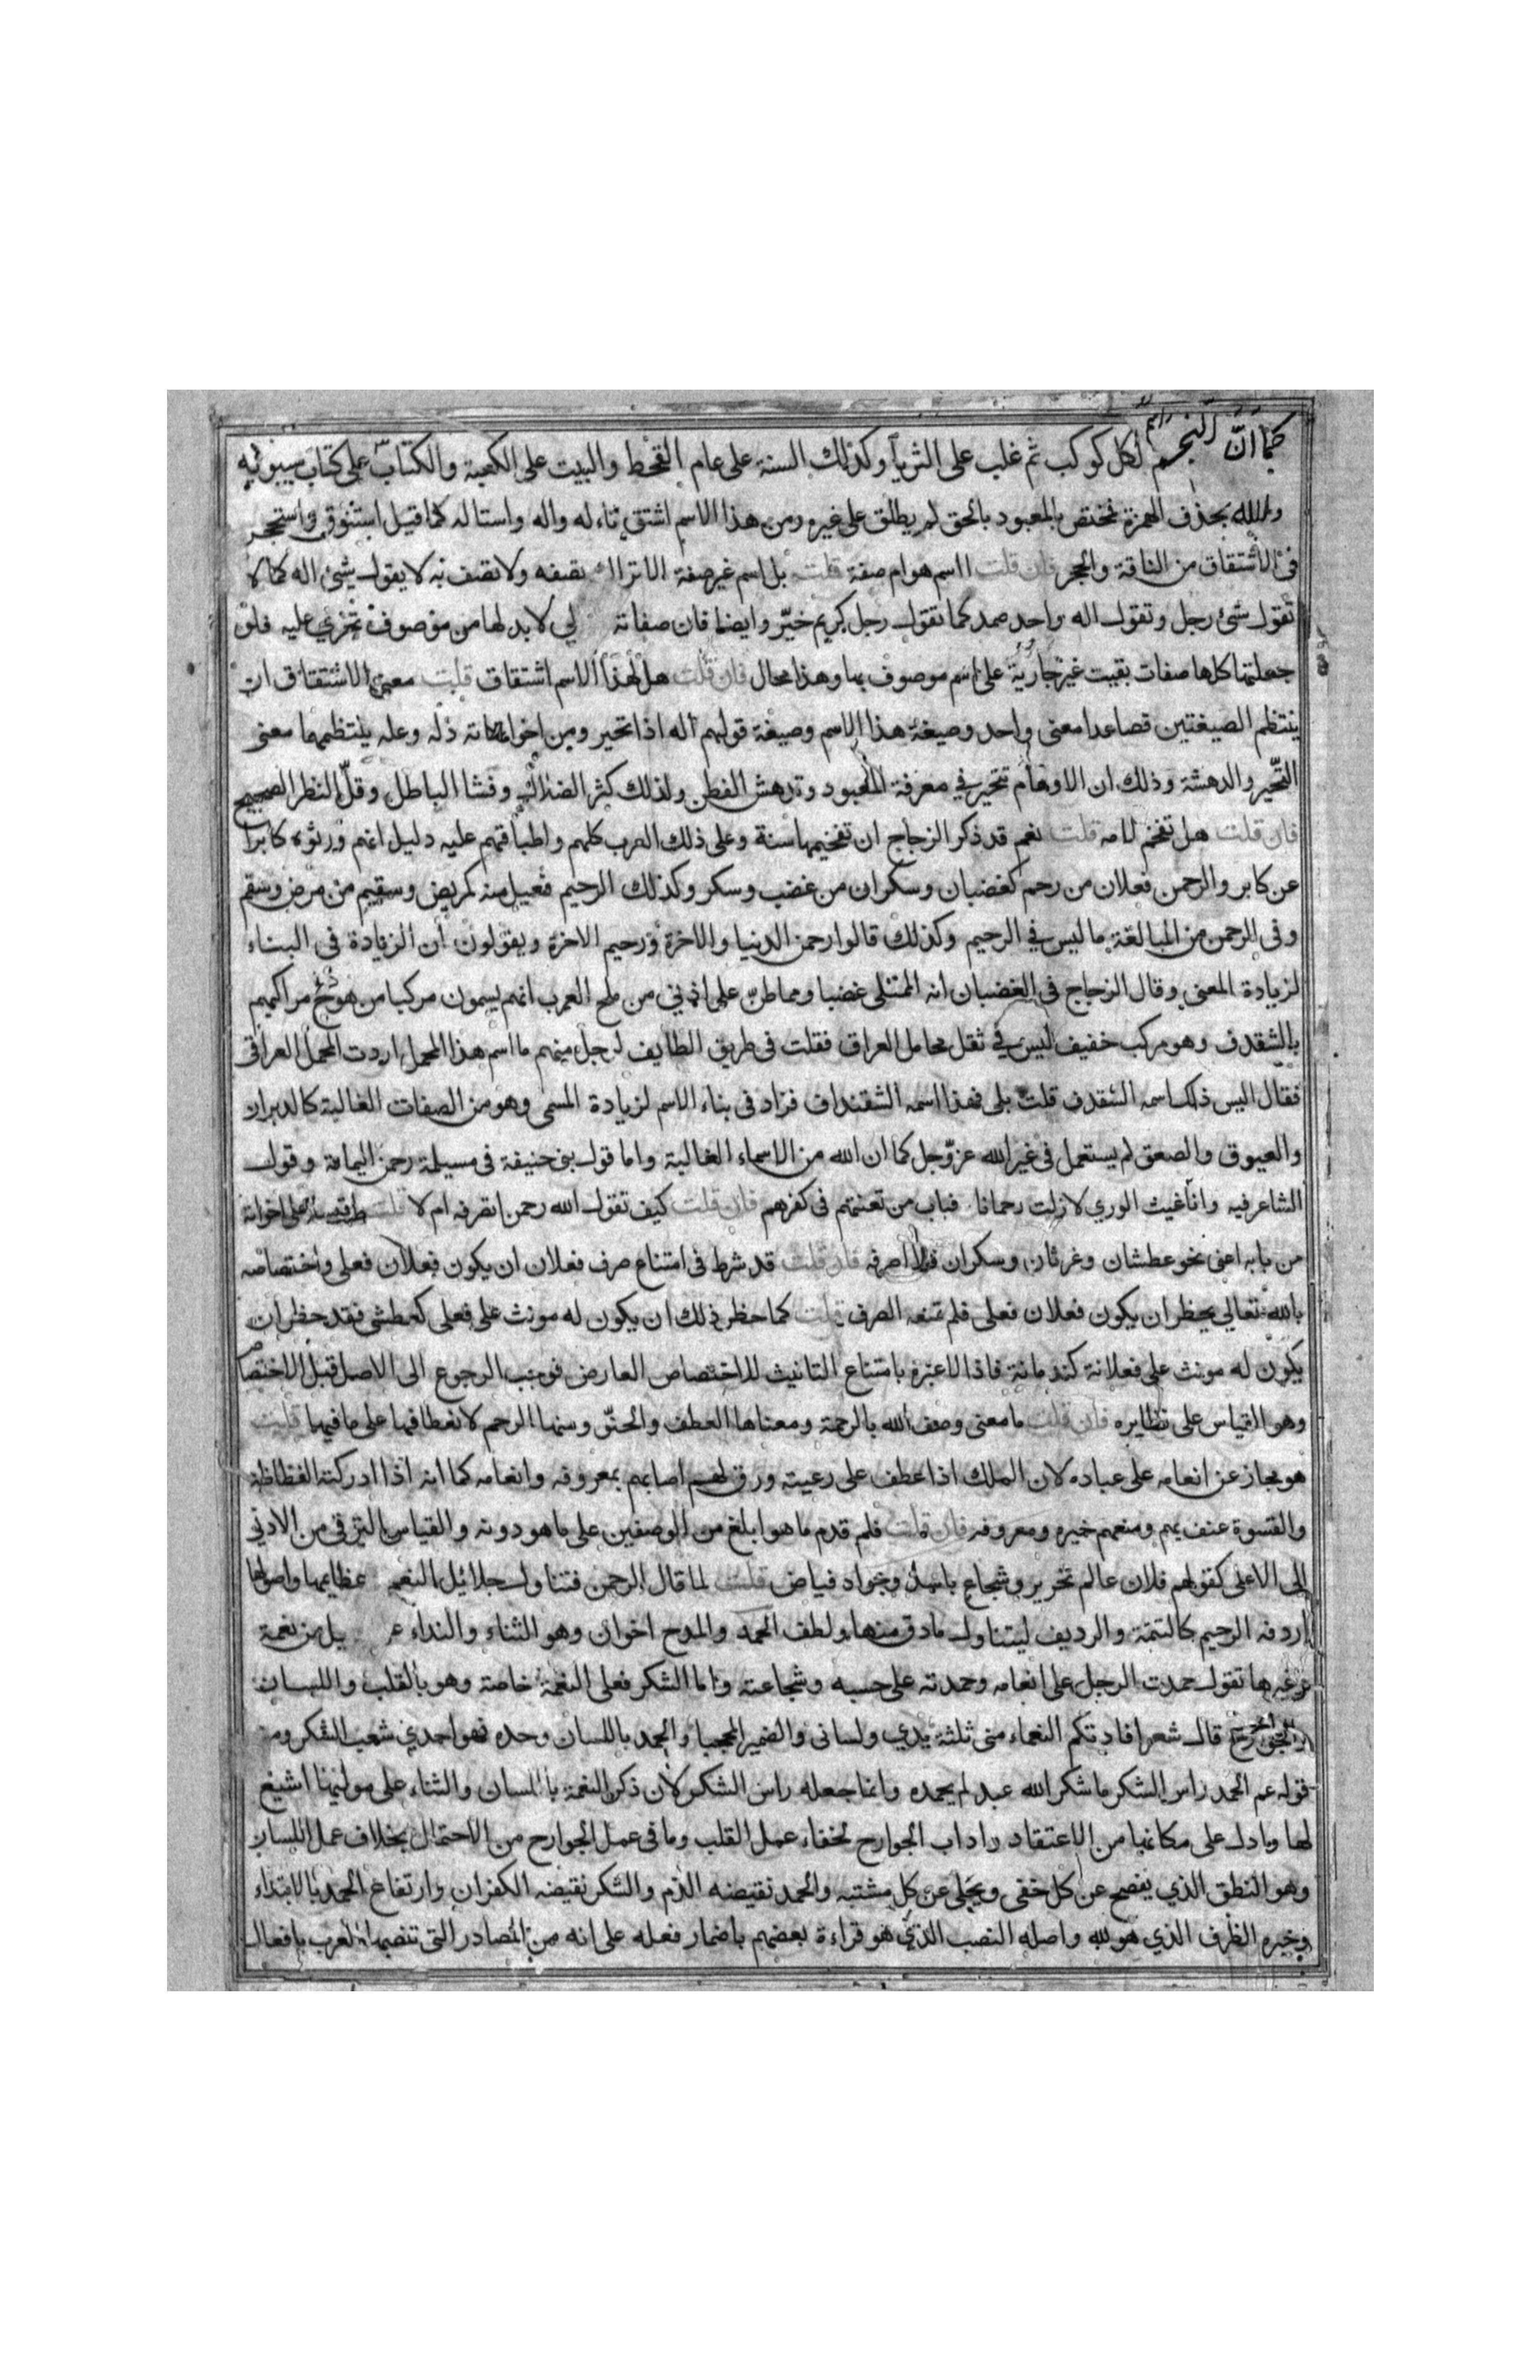 كما ان النجم اسم لكل كوكب ثم غلب على الثريا وكذلك السنة على عام القحط والبيت على الكعبة والكتاب على كتاب سيبويه
والله بحذف الهمزة مختص بالمعبود بالحق لم يطلق على غيره ومن هذا الاسم اشتق تاله واله واستاله كما قيل استنوق واستحجر
في الاشتقاق من الناقة والحجر فان قلت ااسم هو ام صفة قلت بل اسم غير صفة الا تراك تصفه ولا تصف به لا يقول شئ اله كما لا
تقول شئ رجل وتقول اله واحد صمد كما تقول رجل كريم خير وايضا فان صفاته لي لابد لها من موصوف تجري عليه فلو
جعلتها كلها صفات بقيت غير جارية على اسم موصوف بها وهذا محال فان قلت هل لهذا الاسم اشتقاق قلت معنى الاشتقاق ان
ينتظم الصيغتين فصاعدا معنى واحد وصيغة هذا الاسم وصيغة قولهم اله اذا تحير ومن اخواته دله وعله ينتظمهما معنى
التحير والدهشة وذلك ان الاوهام تتحير في معرفة المعبود وتدهش الفطن ولذلك كثر الضلال وفشا الباطل وقل النظر الصحيح
فان قلت هل تفخم لامه قلت نعم قد ذكر الزجاج ان تفخيمها سنة وعلى ذلك العرب كلهم واطباقهم عليه دليل انهم ورثوه كابرا
عن كابر والرحمن فعلان من رحم كغضبان وسكران من غضب وسكر وكذلك الرحيم فعيل منه كمريض وسقيم من مرض وسقم
وفى الرحمن من المبالغة ما ليس في الرحيم وكذلك قالوا رحمن الدنيا والاخرة ورحيم الاخرة ويقولون ان الزيادة فى البناء
لزيادة المعنى وقال الزجاج فى الغضبان انه الممتلى غضبا ومما طن على اذني من ملح العرب انهم يسمون مركبا من مراكبهم
بالشقدف وهو مركب خفيف ليس في ثقل محامل العراق فقلت فى طريق الطايف لرجل منهم ما اسم هذا المحمل اردت المحمل العراقى
فقال اليس ذلك اسمه الشقدف قلت بلى فهذا اسمه الشقنداف فزاد فى بناء الاسم لزيادة المسمى وهو من الصفات الغالبة كالدبران
والعيوق والصعق لم يستعمل فى غير الله عز وجل كما ان الله من الاسماء الغالبة واما قول بنى حنيفة فى مسيلمة رحمن اليمامة وقول
الشاعر فيه وانت غيث الوري لا زلت رحمانا فباب من تعنتهم فى كفرهم فان قلت كيف تقول الله رحمن اتصرفه ام لا قلت اقيسه على اخواته
من بابه اعنى نحو عطشان وغرثان وسكران فلا اصرفه فان قلت قد شرط فى امتناع صرف فعلان ان يكون فعلان فعلى واختصاصه
بالله تعالى يحظر ان يكون فعلان فعلى فلم تمنعه الصرف قلت كما حظر ذلك ان يكون له مونث على فعلى كعطشى فقد حظر ان
يكون له مونث على فعلانة كندمانة فاذا لا عبرة بامتناع التانيث للاختصاص العارض فوجب الرجوع الى الاصل قبل الاختصاص
وهو القياس على نظايره فان قلت ما معنى وصف الله بالرحمة ومعناها العطف والحنو ومنها الرحم لانعطافها على ما فيها قلت
هو مجاز عن انعامه على عباده لان الملك اذا عطف على رعيته ورق لهم اصابهم بمعروفه وانعامه كما انه اذا ادركته الفظاظة
والقسوة عنف بهم ومنعهم خيره ومعروفه فان قلت فلم قدم ما هو ابلغ من الوصفين على ما هو دونه والقياس الترقى من الادنى
الى الاعلى كقولهم فلان عالم نحرير وشجاع باسل وجواد فياض قلت لما قال الرحمن فتناول جلائل النعم عظايمها واصولها
اردفه الرحيم كالتتمة والرديف ليتناول ما دق منها ولطف الحمد والمدح اخوان وهو الثناء والنداء يل من نعمة
وغيرها تقول حمدت الرجل على انعامه وحمدته على حسبه وشجاعته واما الشكر فعلى النعمة خاصة وهو بالقلب واللسان
والجوارح قال شعر افادتكم النعماء منى ثلثة يدي ولسانى والضمير المحجبا والحمد باللسان وحده فهو احدي شعب الشكر ومنه
قوله عم الحمد راس الشكر ما شكر الله عبد لم يحمده وانما جعله راس الشكر لان ذكر النعمة باللسان والثناء على موليها اشيع
لها وادل على مكانها من الاعتقاد واداب الجوارح لخفاء عمل القلب وما فى عمل الجوارح من الاحتمال بخلاف عمل اللسان
وهو النطق الذي يفصح عن كل خفى ويجلى عن كل مشتبه والحمد نقيضه الذم والشكر نقيضه الكفران وارتفاع الحمد بالابتداء
وخبره الظرف الذي هو لله واصله النصب الذي هو قراءة بعضهم باضمار فعله على انه من المصادر التى تنصبها العرب بافعال